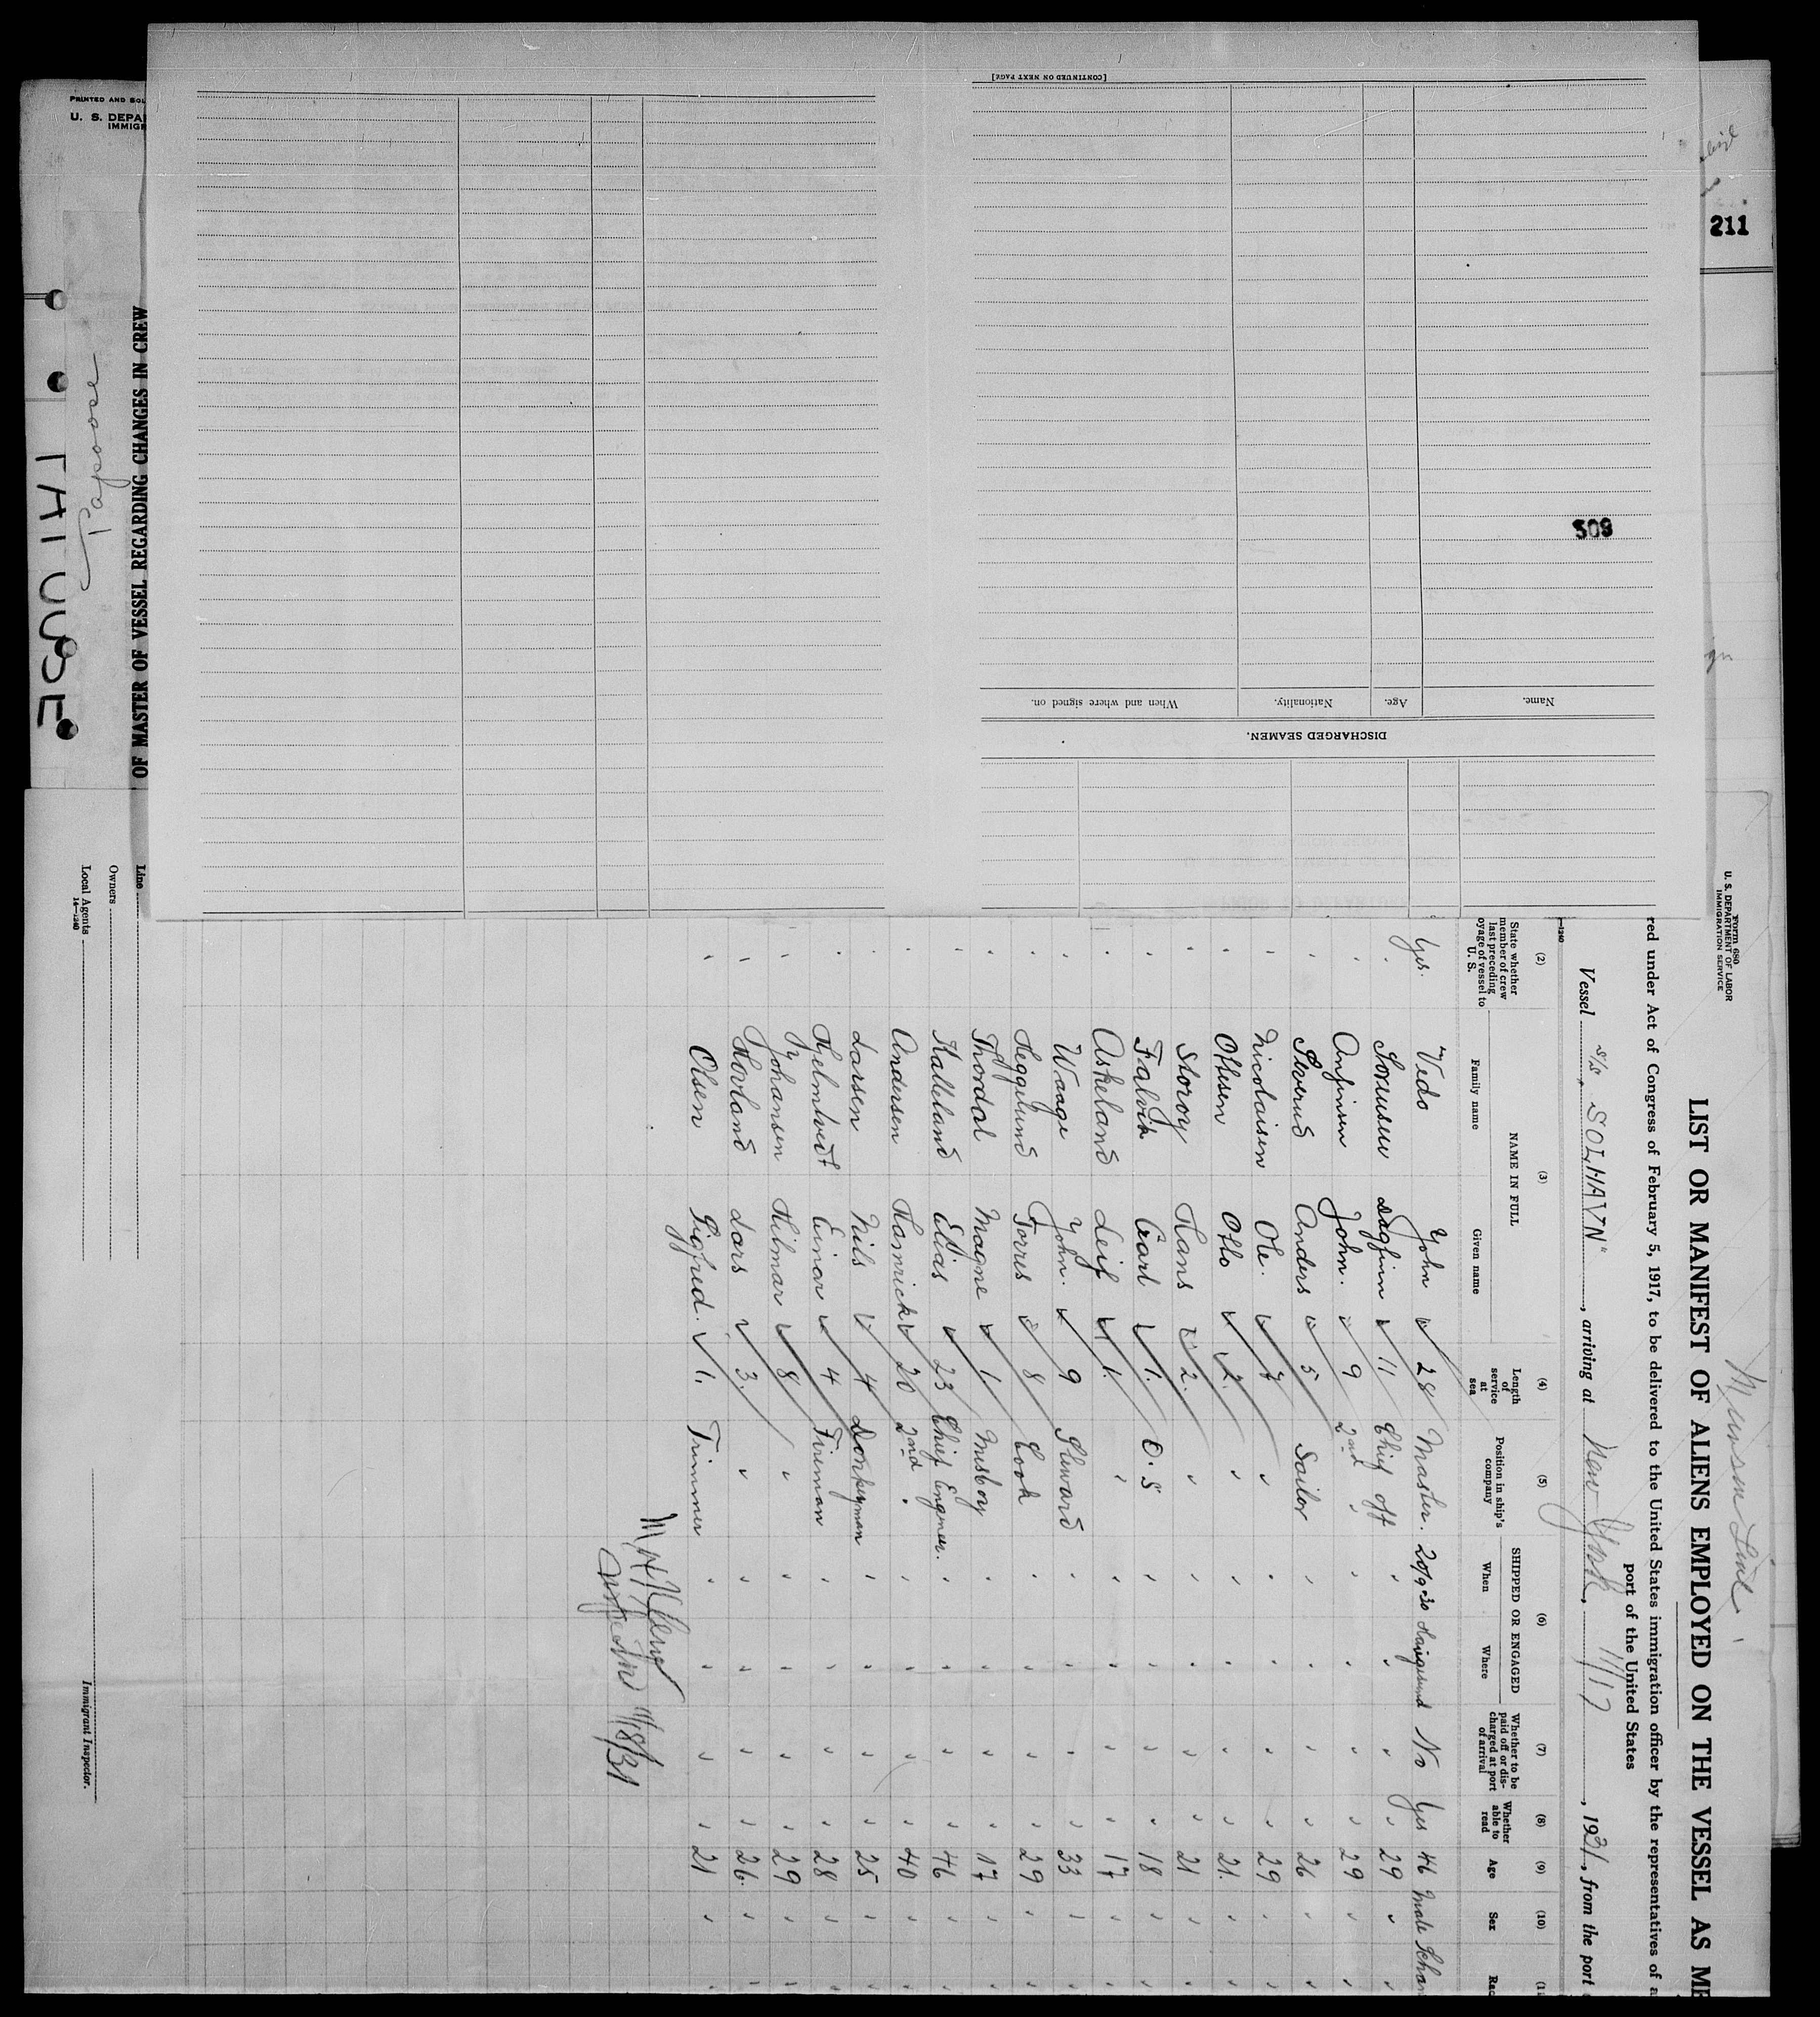 Munson Line
Form 680
U. S. DEPARTMENT OF LABOR
IMMIGRATION SERVICE
211
LIST OR MANIFEST OF ALIENS EMPLOYED ON THE VESSEL AS ME
red under Act of Congress of February 5, 1917, to be delivered to the United States immigration officer by the representatives of a
port of the United States
Vessel S/S "SOLHAVN", arriving at New York, 11/17, 1931, from the port
(2) (3) (4) (5) (6) (7) (8) (9) (10) (11
State whether member of crew last preceding voyage of vessel to U. S.
NAME IN FULL
Family name Given name
Length of service at sea
Position in ship's company
SHIPPED OR ENGAGED
When Where
Whether to be paid off or discharged at port of arrival
Whether able to read
Age Sex Rac
Yes. Vedo John 28 Master. 20/9-30 Haugesund No Yes 46 Male Schan
" Dagfinn 11 Chief off " " " " 29 " "
" Anfinsen John. 9 2nd " " " " " 29 " "
" Sverud Anders 5 Sailor " " " " 26 " "
" Nicolaisen Ole. 7 " " " " " 29 " "
" Ottesen Otto 2. " " " " " 21. " "
" Storoy Hans 2. " " " " " 21 " "
" Falvik Carl 1. O.S " " " " 18 " "
" Askeland Leif 1. " " " " " 17 " "
" Waage John. 9 Steward " " " " 33 " "
" Heggelund Torris 8 Cook " " " " 29 " "
" Thordal Magne 1 Messboy " " " " 17 " "
" Halleland Elias 23 Chief Engineer. " " " " 46 " "
" Andersen Hamrick 20 2nd " " " " " 40 " "
" Larsen Nils 4 Donkeyman " " " " 25 " "
" Hjelmtvedt Einar 4 Fireman " " " " 28 " "
" Johansen Hilmar 8 " " " " " 29 " "
" Hovland Lars 3. " " " " " 26. " "
" Olsen Sigfred. 1. Trimmer " " " " 21 " "
11/18/31
Line
Owners
Local Agents
14—1240
Immigrant Inspector.
PRINTED AND SOL
U. S. DEPA
IMMIGR
OF MASTER OF VESSEL REGARDING CHANGES IN CREW
[CONTINUED ON NEXT PAGE]
509
DISCHARGED SEAMEN.
Name. Age. Nationality. When and where signed on.